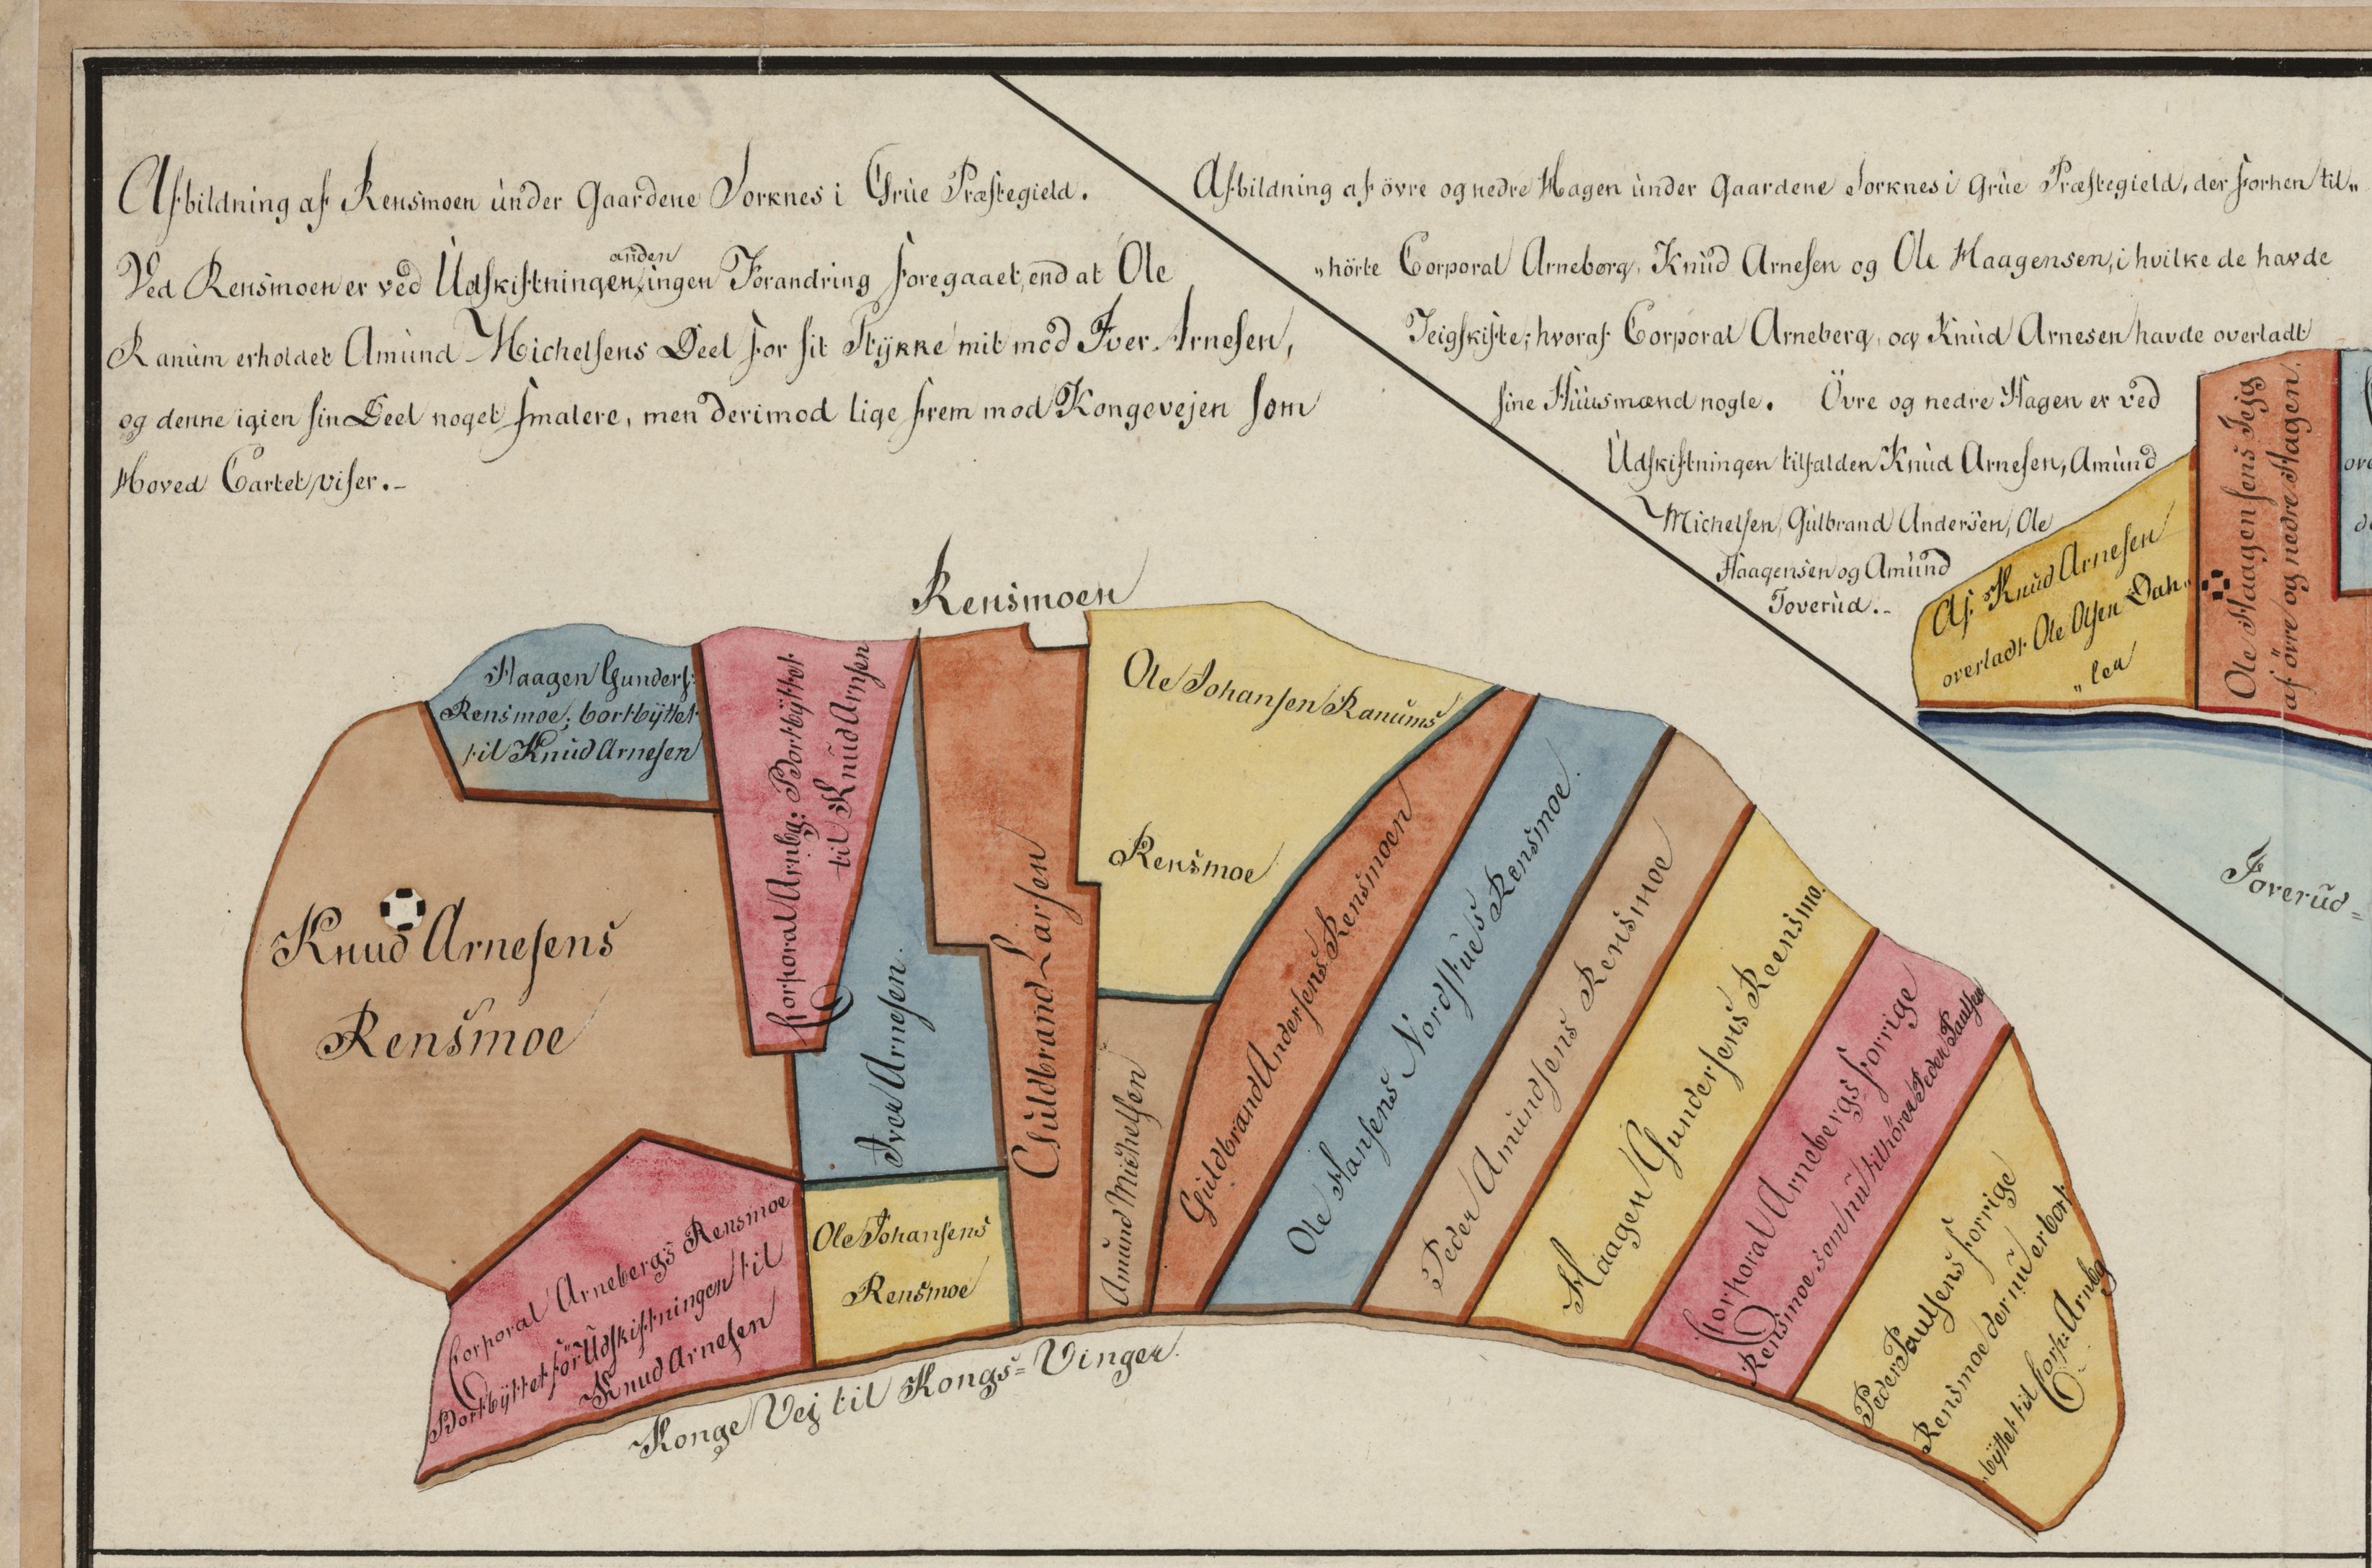 Afbildning af Rensmoen under Gaardene Sorknes i Grüe Præstegield.
Ved Rensmoen er ved Udskiftningen anden ingen Forandring foregaaet, end at Ole
Ranum erholdet Amund Michelsens Deel for sit Stÿkke mit mod Iver Arnesen,
og denne igien sin Deel noget smalere, men derimod lige frem mod Kongevejen som
Hoved Cartet viser.-
Afbildning af övre og nedre Hagen under Gaardene Sorknes i Grüe Præstegield, der forhen til„
„hörte Corporal Arneberg, Knud Arnesen og Ole Haagensen, i hvilke de havde
Teigskifte; hvoraf Corporal Arneberg, og Knud Arnesen havde overladt
sine Huusmænd nogle. Övre og nedre Hagen er ved
Udskiftningen tilfalden Knud Arnesen, Amund
Michelsen, Gulbrand Andersen, Ole
Haagensen og Amund
Toverud.-
Af Knud Arnesen
overladt Ole Olsen Dah„
„len
Ole Haagensens Tejg
af övre og nedre Hagen.
Toverud=
Rensmoen
Haagen Gunders:
Rensmoe; bortbÿttet
til Knud Arnesen
Corporal Arnbg: Bortbÿttet
til Knud Arnsen
Knud Arnesens
Rensmoe
Iver Arnesen.
Guldbrand Larsen
Ole Johansen Ranums
Rensmoe
Amund Michelsen
Guldbrand Andersens Rensmoen
Ole Hansens Nordstues Rensmoe.
Peder Amundsens Rensmoe
Haagen Gundersens Reensmo.
Corporal Arnebergs forrige
Rensmoe som nu tilhörer Peder Paulsen
Peder Paulsens forrige
Rensmoe der nu er bort
„bÿttet til Corp: Arnbg
Corporal Arnebergs Rensmoe
Bortbÿttet för Udskiftningen til
Knud Arnesen
Ole Johansens
Rensmoe
Konge Vej til Kongs=Vinger.